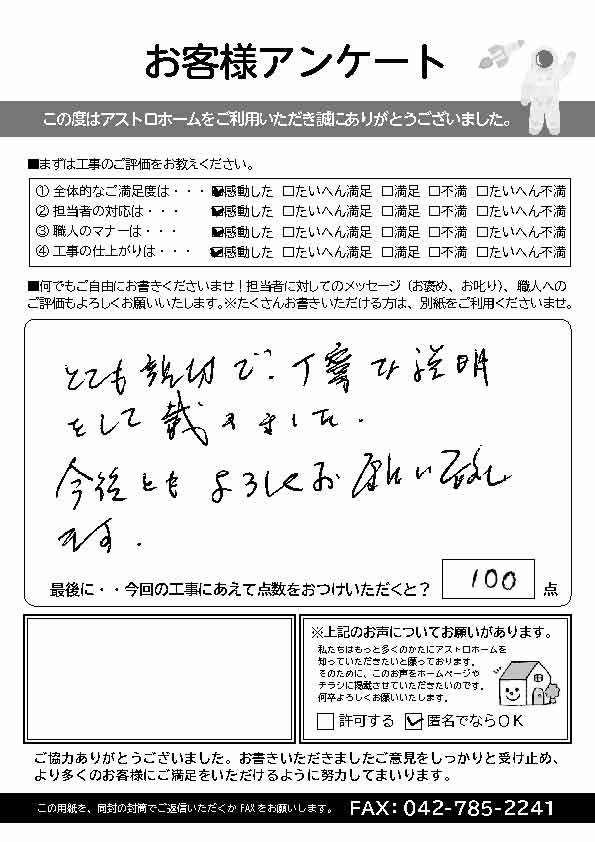 お客様アンケート
この度はアストロホームをご利用いただき誠にありがとうございました。
■まずは工事のご評価をお教えください。
① 全体的なご満足度は・・・ ☑感動した □たいへん満足 □満足 □不満 □たいへん不満
② 担当者の対応は・・・ ☑感動した □たいへん満足 □満足 □不満 □たいへん不満
③ 職人のマナーは・・・ ☑感動した □たいへん満足 □満足 □不満 □たいへん不満
④ 工事の仕上がりは・・・ ☑感動した □たいへん満足 □満足 □不満 □たいへん不満
■何でもご自由にお書きくださいませ！担当者に対してのメッセージ（お褒め、お叱り）、職人への
ご評価もよろしくお願いいたします。※たくさんお書きいただける方は、別紙をご利用くださいませ。
とても親切で、丁寧な説明
をして戴きました。
今後ともよろしくお願い致し
ます。
最後に・・今回の工事にあえて点数をおつけいただくと？ 100 点
※上記のお声についてお願いがあります。
私たちはもっと多くのかたにアストロホームを
知っていただきたいと願っております。
そのために、このお声をホームページや
チラシに掲載させていただきたいのです。
何卒よろしくお願いいたします。
□許可する ☑匿名でならＯＫ
ご協力ありがとうございました。お書きいただきましたご意見をしっかりと受け止め、
より多くのお客様にご満足をいただけるように努力してまいります。
この用紙を、同封の封筒でご返信いただくか FAX をお願いします。 FAX: 042-785-2241